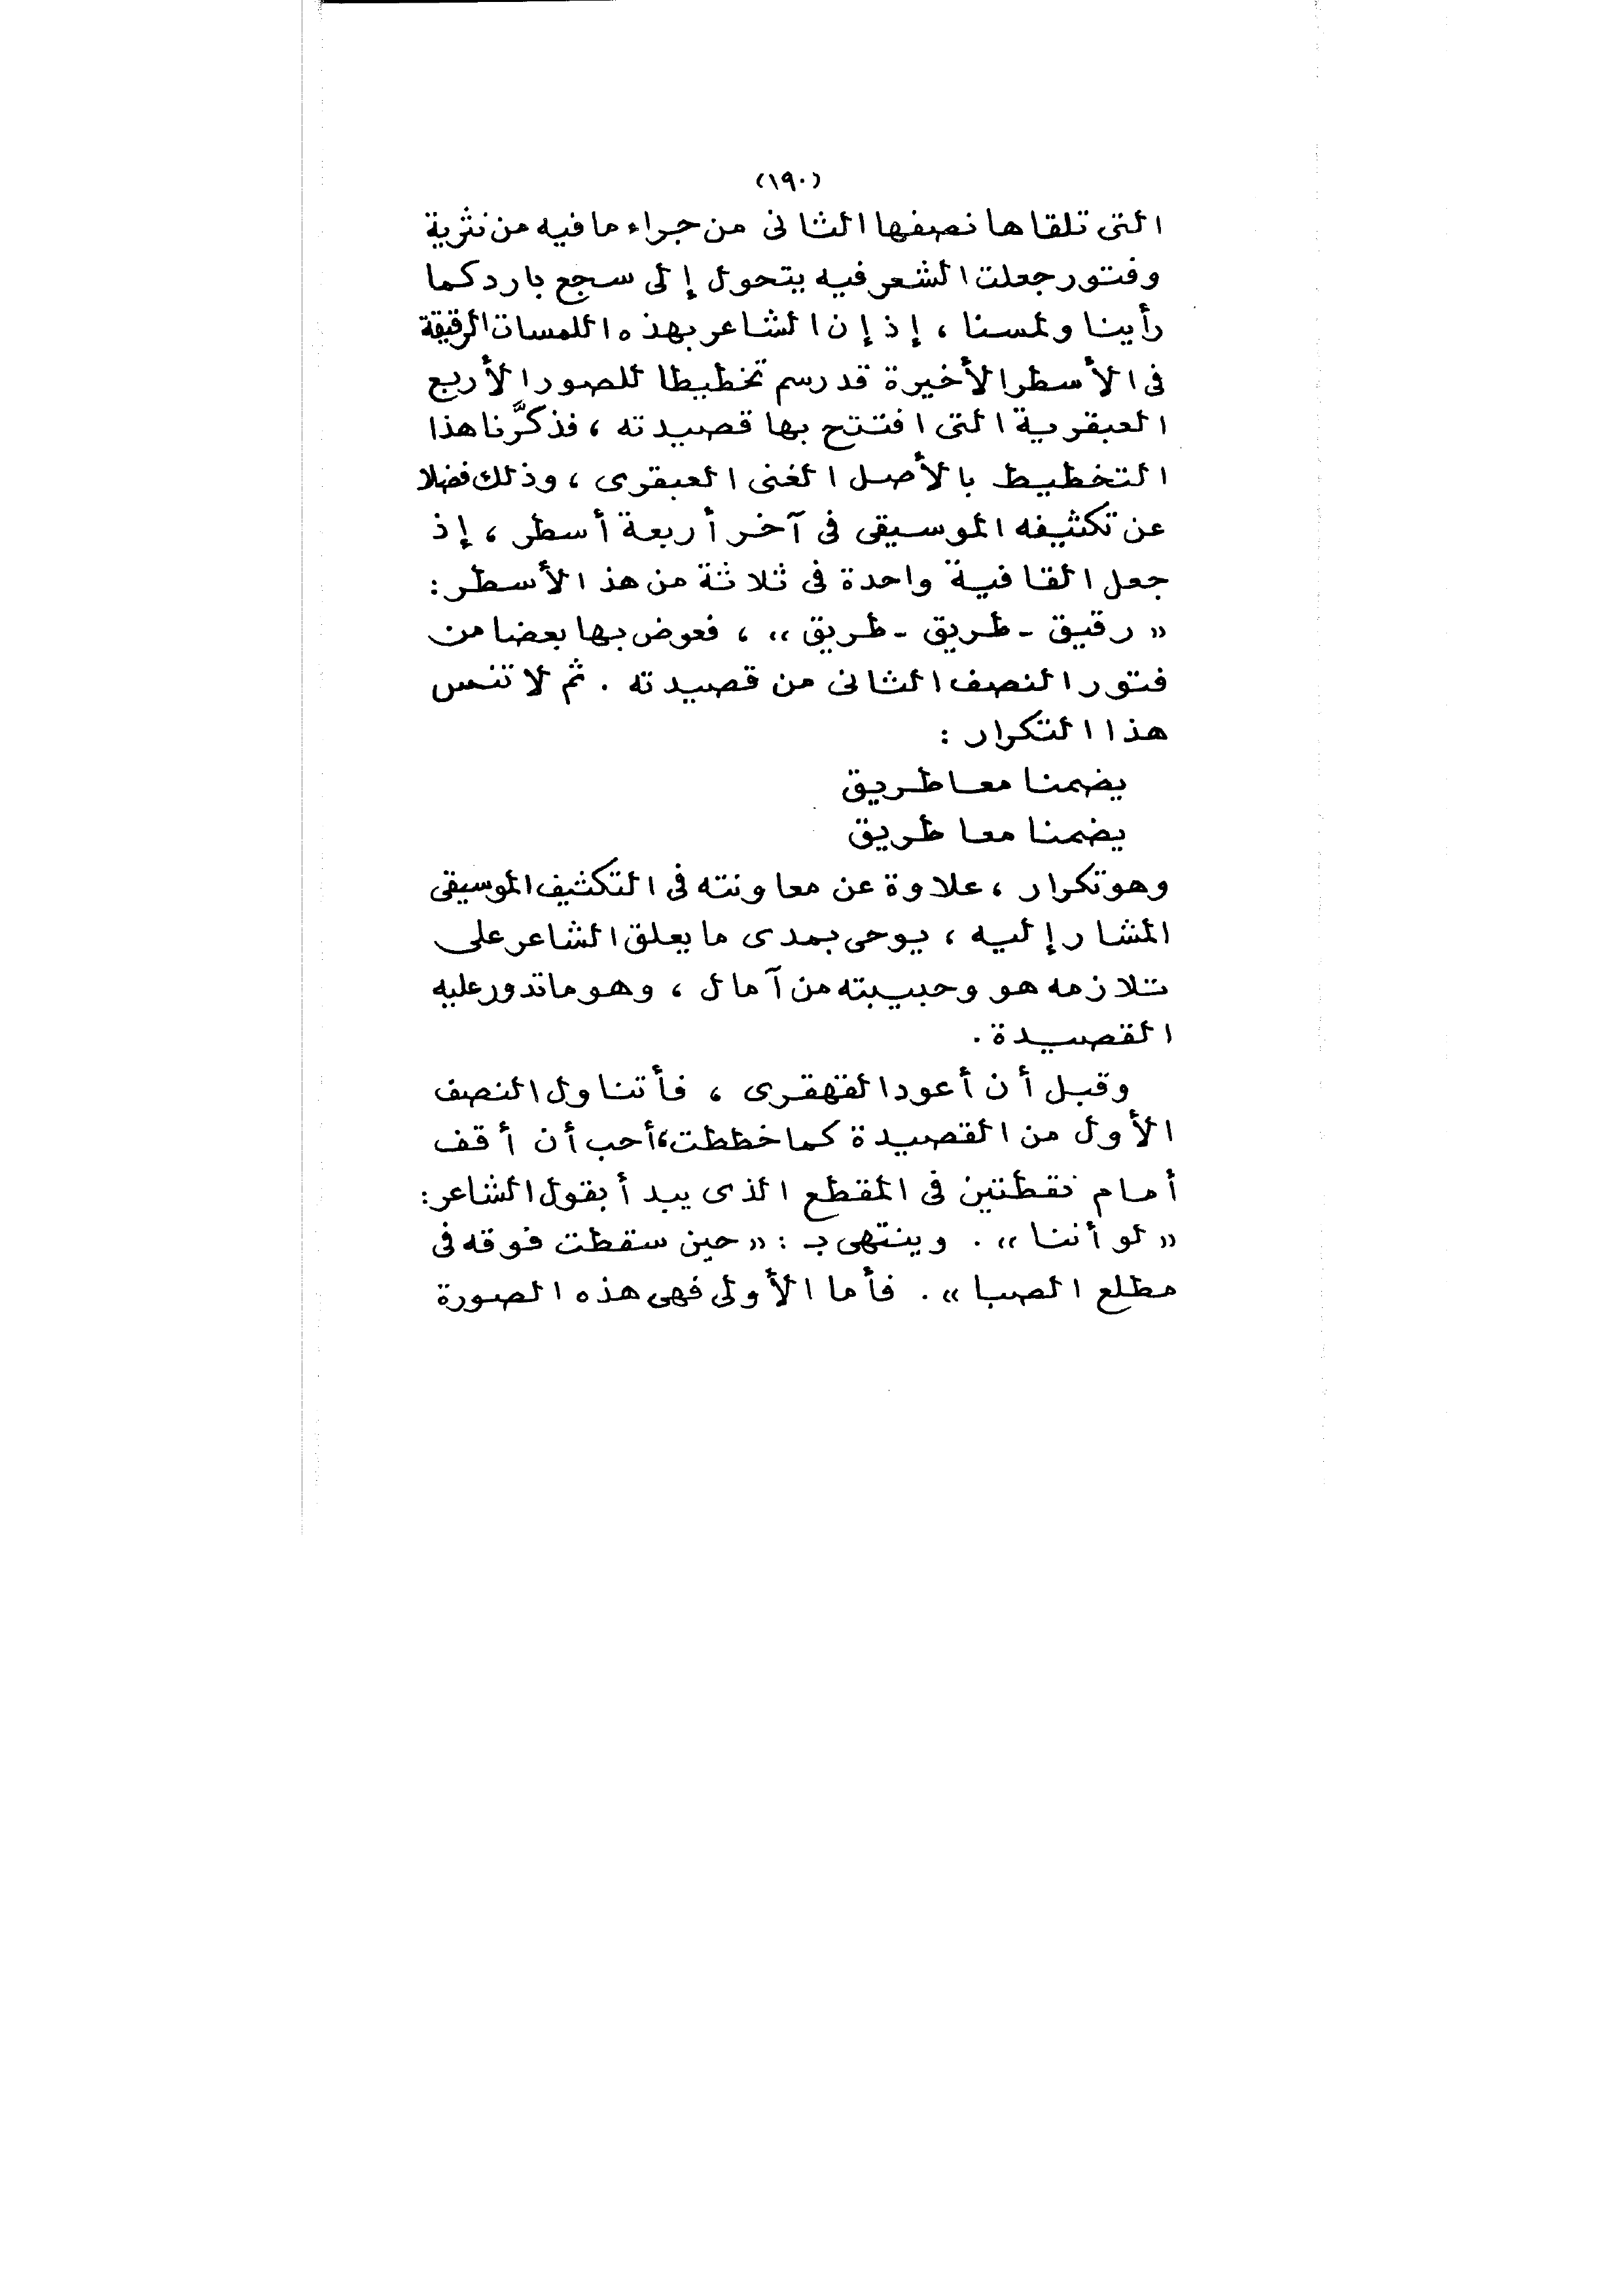 (١٩٠)
التى تلقاها نصفها الثانى من جراء ما فيه من نثرية
وفتور جعلت الشعر فيه يتحول إلى سجع بارد كما
رأينا ولمسنا ، إذ إن الشاعر بهذه اللمسات الرقيقة
فى الأسطر الأخيرة قد رسم تخطيطا للصور الأربع
العبقرية التى افتتح بها قصيدته ، فذكَّرنا هذا
التخطيط بالأصل الغنى العبقرى ، وذلك فضلا
عن تكثيفه الموسيقى فى آخر أربعة أسطر ، إذ
جعل القافية واحدة فى ثلاثة من هذ الأسطر :
« رقيق - طريق - طريق » ، فعوض بها بعضا من
فتور النصف الثانى من قصيدته . ثم لا تنس
هذا التكرار :
يضمنا معا طريق
يضمنا معا طريق
وهو تكرار ، علاوة عن معاونته فى التكثيف الموسيقى
المشار إليه ، يوحى بمدى ما يعلق الشاعر على
تلازمه هو وحبيبته من آمال ، وهو ما تدور عليه
القصيدة .
وقبل أن أعود القهقرى ، فأتناول النصف
الأول من القصيدة كما خططت ، أحب أن أقف
أمام نقطتين فى المقطع الذى يبدأ بقول الشاعر :
« لو أننا » . وينتهى بـ : « حين سقطت فوقه فى
مطلع الصبا » . فأما الأولى فهى هذه الصورة